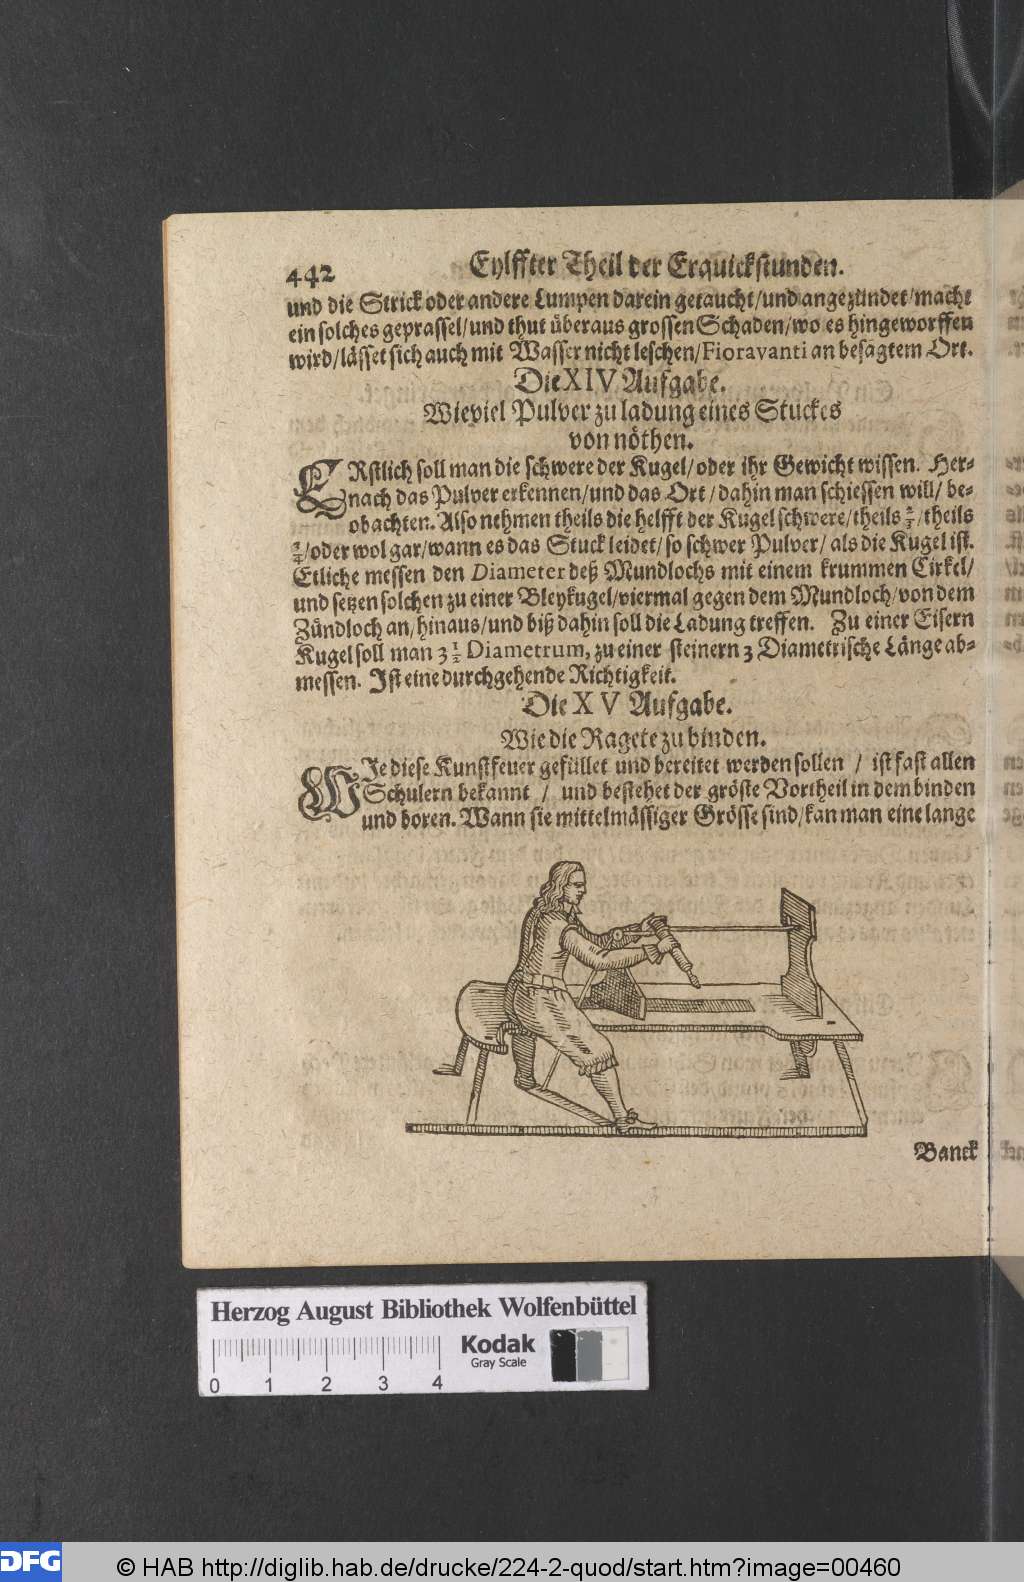 442 Eylffter Theil der Erquickstunden.
und die Strick oder andere Lumpen darein getaucht/und angezündet/macht
ein solches geprassel/und thut überaus grossen Schaden/wo es hingeworffen
wird/lässet sich auch mit Wasser nicht leschen/Fioravanti an besagtem Ort.
Die XIV Aufgabe.
Wieviel Pulver zu ladung eines Stuckes
von nöthen.
ERstlich soll man die schwere der Kugel/oder ihr Gewicht wissen. Her-
nach das Pulver erkennen/und das Ort/dahin man schiessen will/be-
obachten. Also nehmen theils die helfft der Kugel schwere/theils 2/3/theils
3/4/oder wol gar/wann es das Stuck leidet/so schwer Pulver/als die Kugel ist.
Etliche messen den Diameter deß Mundlochs mit einem krummen Cirkel/
und setzen solchen zu einer Bleykugel/viermal gegen dem Mundloch/von dem
Zündloch an/hinaus/und biß dahin soll die Ladung treffen. Zu einer Eisern
Kugel soll man 3 1/2 Diametrum, zu einer steinern 3 Diametrische Länge ab-
messen. Ist eine durchgehende Richtigkeit.
Die XV Aufgabe.
Wie die Ragete zu binden.
WIe diese Kunstfeuer gefüllet und bereitet werden sollen / ist fast allen
Schulern bekannt / und bestehet der gröste Vortheil in dem binden
und boren. Wann sie mittelmässiger Grösse sind/kan man eine lange
Banck
Herzog August Bibliothek Wolfenbüttel
Kodak
Gray Scale
0 1 2 3 4
DFG © HAB http://diglib.hab.de/drucke/224-2-quod/start.htm?image=00460